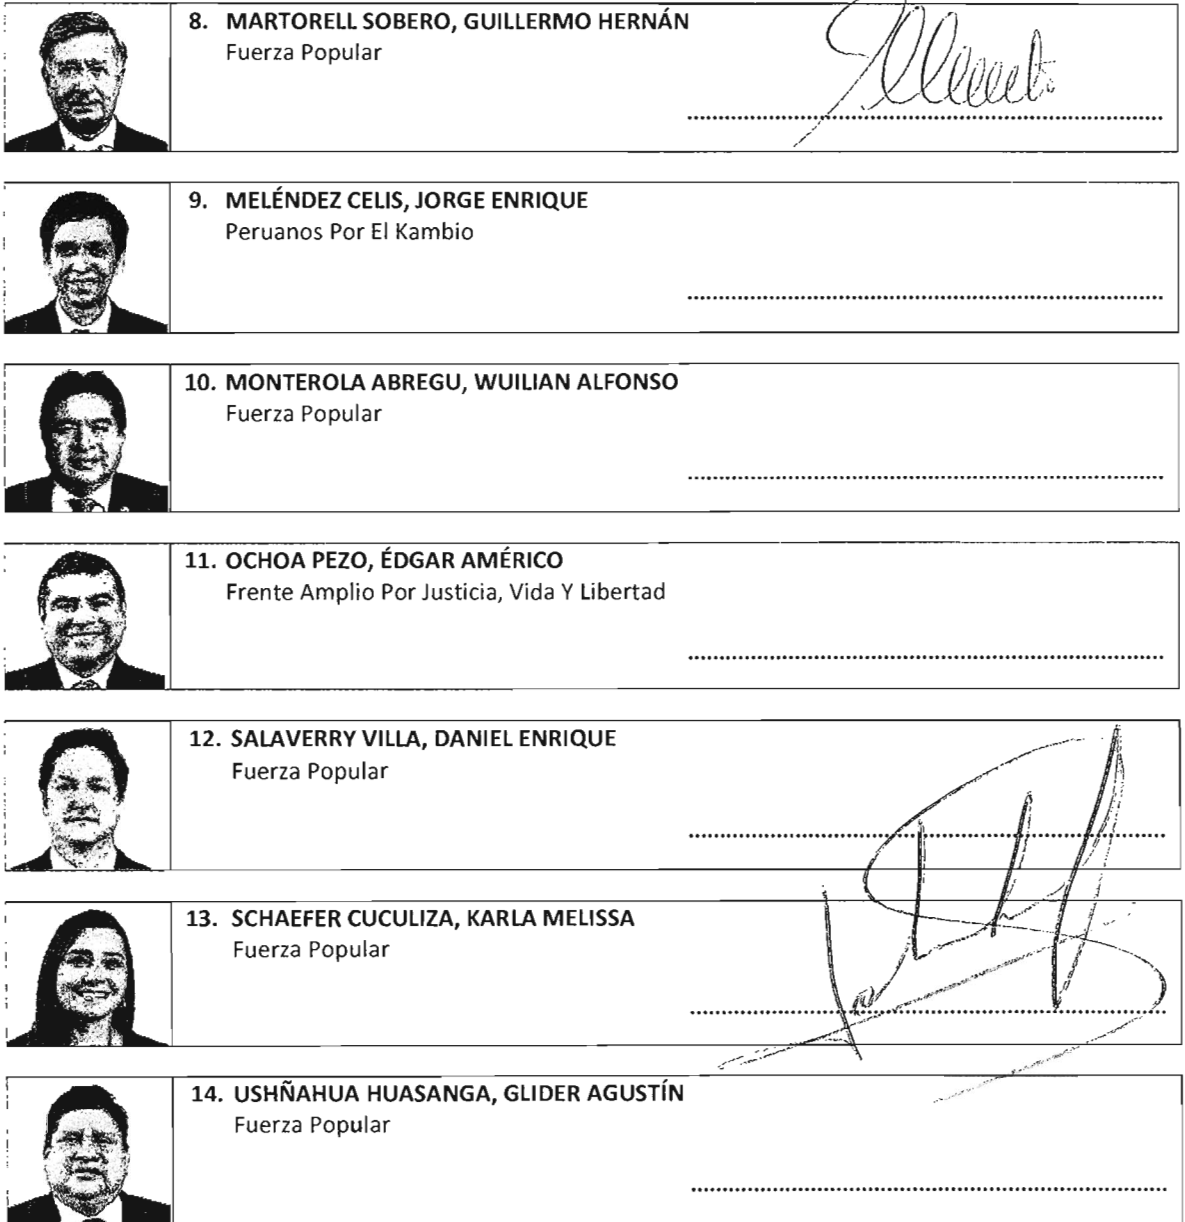 8. MARTORELL SOBERO, GUILLERMO HERNÁN
Fuerza Popular
9. MELÉNDEZ CELIS, JORGE ENRIQUE
Peruanos Por El Kambio
10. MONTEROLA ABREGU, WUILIAN ALFONSO
Fuerza Popular
11. OCHOA PEZO, ÉDGAR AMÉRICO
Frente Amplio Por Justicia, Vida Y Libertad
12. SALAVERRY VILLA, DANIEL ENRIQUE
Fuerza Popular
13. SCHAEFER CUCULIZA, KARLA MELISSA
Fuerza Popular
14. USHÑAHUA HUASANGA, GLIDER AGUSTÍN
Fuerza Popular